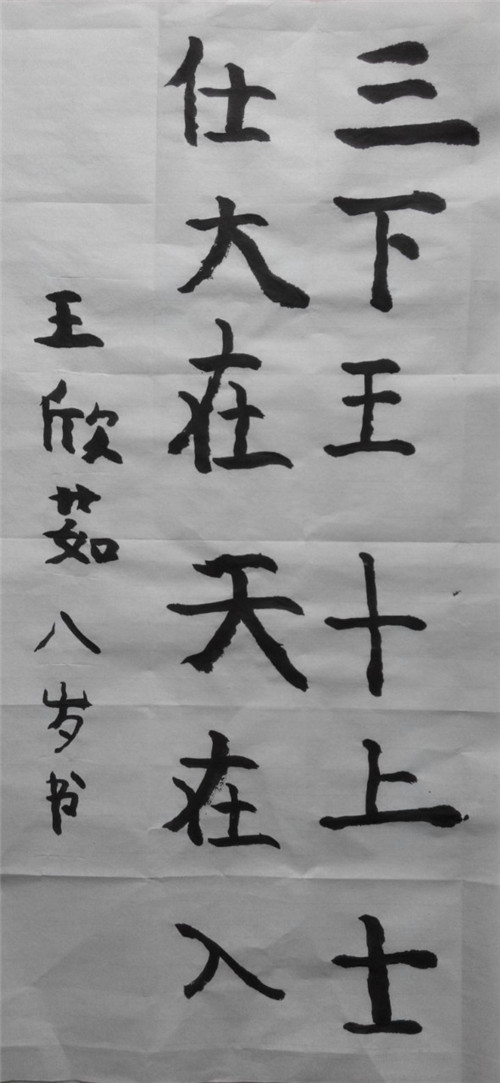 三下王十上士
仕大在天在入
王欣茹八岁书